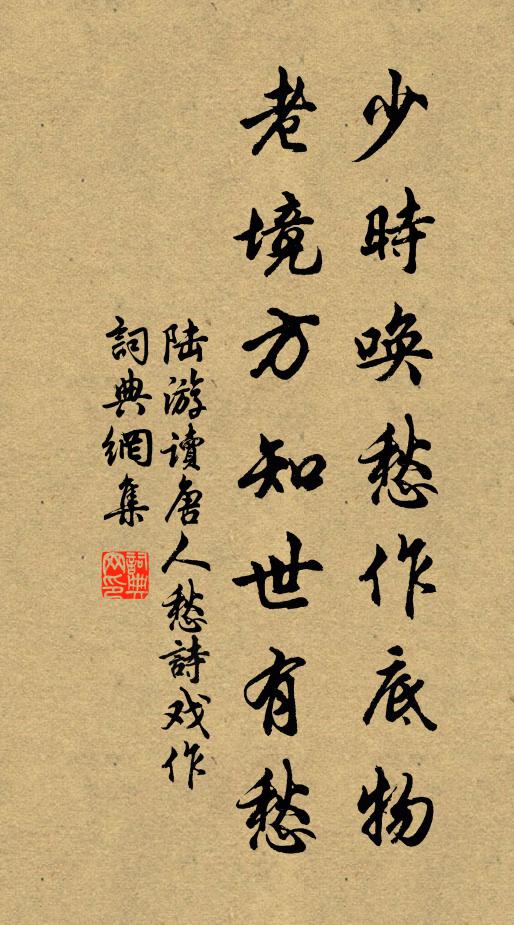 少時喚愁作底物
老境方知世有愁
陆游讀唐人愁詩戏作
詞典網集
詞典網印